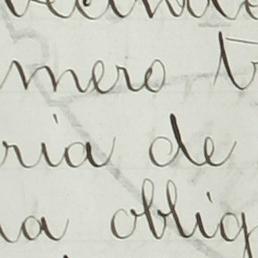 mero t
ria de
a oblig